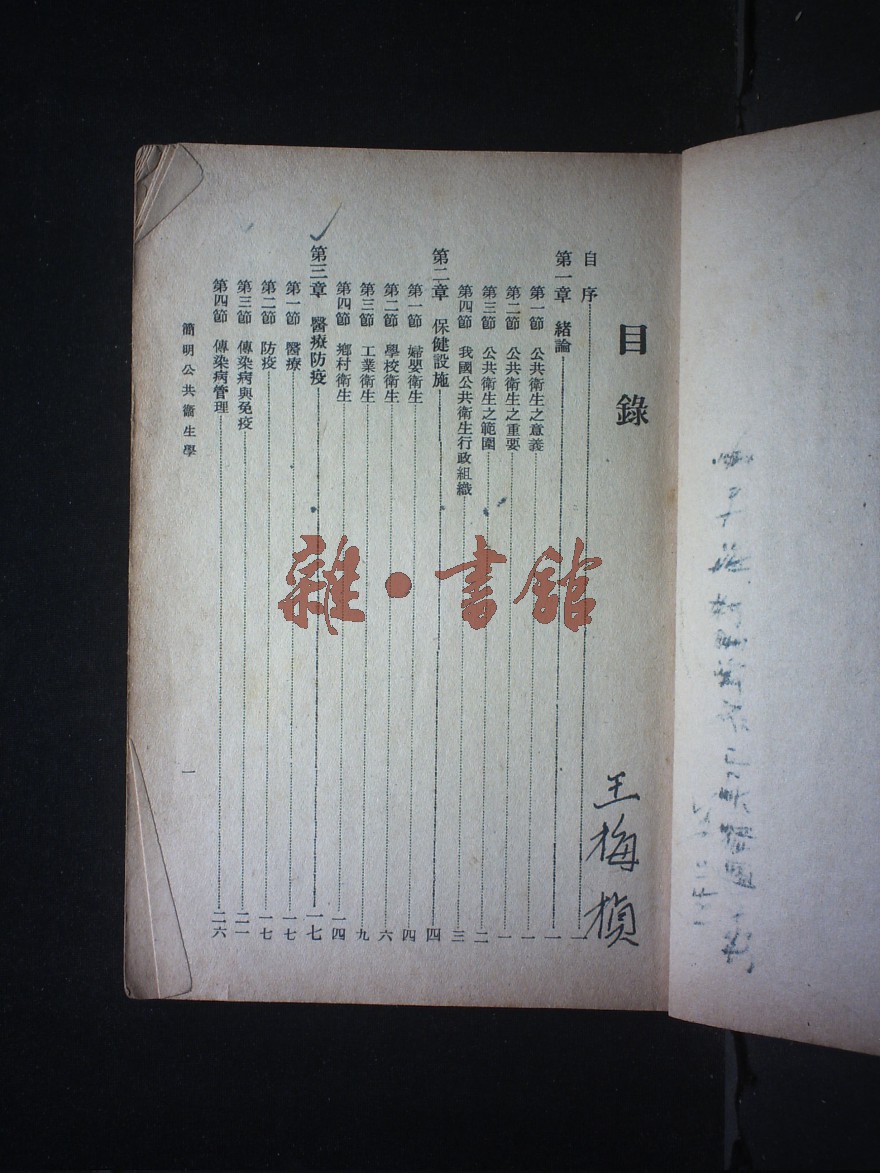 目錄
自序……一
第一章 緒論……一
第一節 公共衛生之意義……一
第二節 公共衛生之重要……一
第三節 公共衛生之範圍……二
第四節 我國公共衛生行政組織……三
第二章 保健設施……四
第一節 婦嬰衛生……四
第二節 學校衛生……六
第三節 工業衛生……九
第四節 鄉村衛生……一四
第三章 醫療防疫……一七
第一節 醫療……一七
第二節 防疫……一七
第三節 傳染病與免疫……二一
第四節 傳染病管理……二六
簡明公共衛生學
一
王梅楨
雜·書館